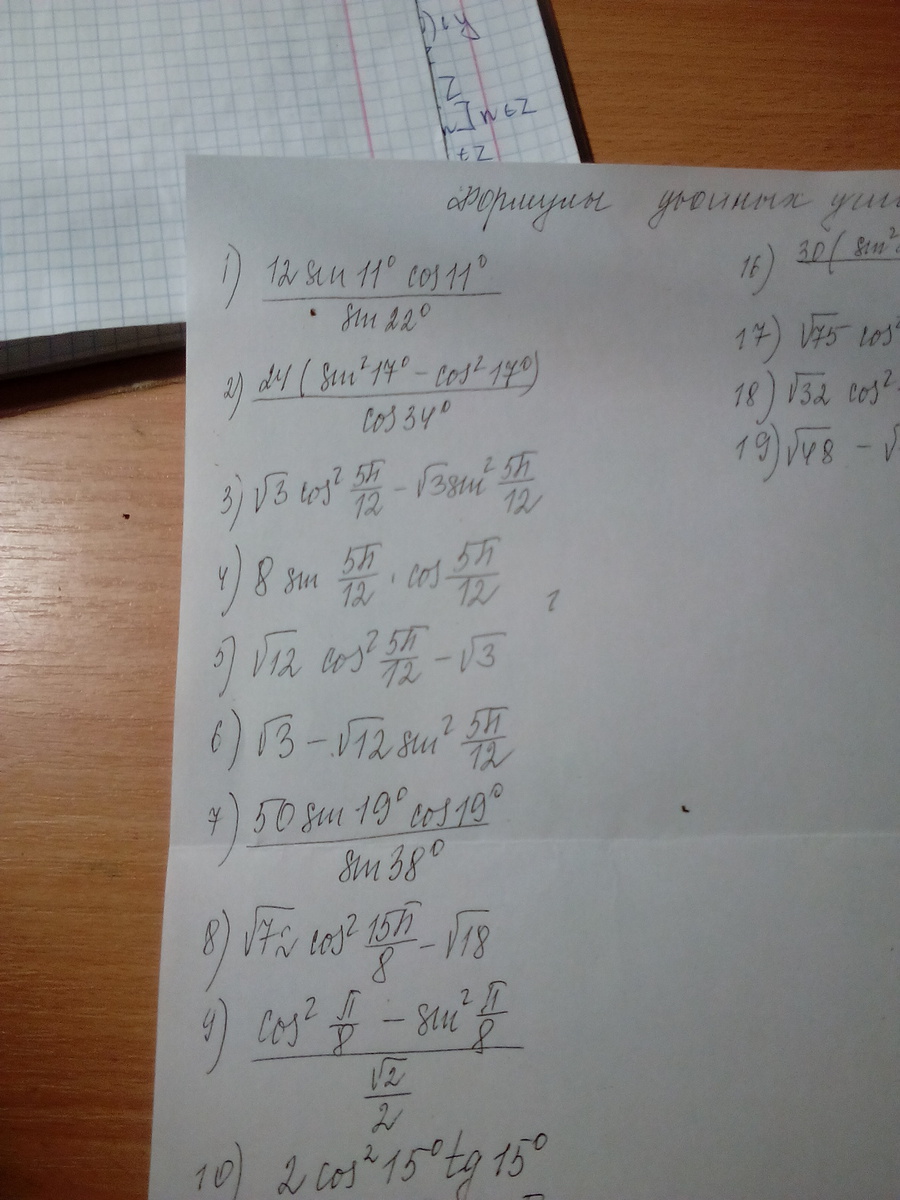 y
Z
n] n ∈ Z
∈ Z
Формулы двойных
1) 12 sin 11° cos 11° / sin 22°
2) 24 ( sin² 17° − cos² 17°) / cos 34°
3) √3 cos² 5π/12 − √3 sin² 5π/12
4) 8 sin 5π/12 · cos 5π/12
5) √12 cos² 5π/12 − √3
6) √3 − √12 sin² 5π/12
7) 50 sin 19° cos 19° / sin 38°
8) √72 cos² 15π/8 − √18
9) cos² π/8 − sin² π/8 / √2/2
10) 2 cos² 15° tg 15°
16) 30 ( sin²
17) √75 cos²
18) √32 cos²
19) √48 − √